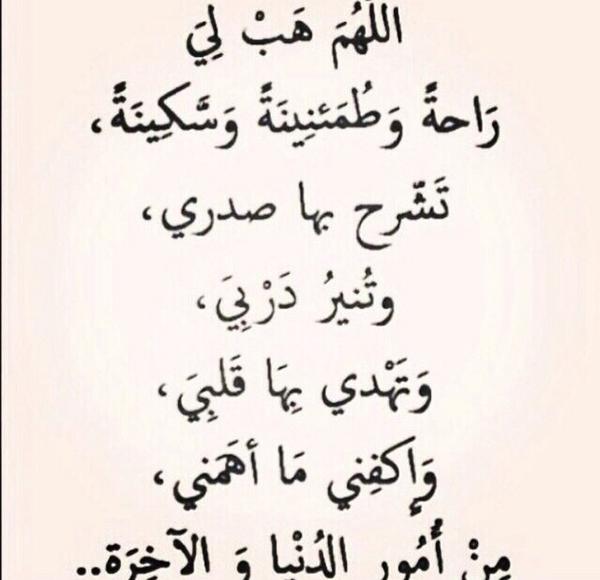 اللَّهُمَ هَبْ لِيَ
رَاحةً وَطُمَئنِينَةً وَسَّكِينَةً،
تَشّرح بها صدري،
وتُنيرُ دَرْبِيَ،
وَتَهْدي بِهَا قَلبِيَ،
وَإكفِني مَا أهَمَني،
مِنْ أُمُورِ الدُنْيا وَ الآخِرَة..